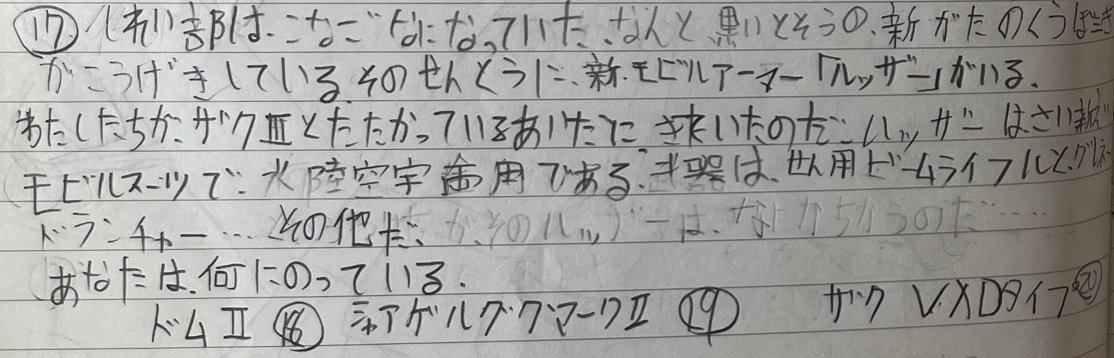 ⑰ しれい部は、こなごなになっていた、なんと黒いとそうの、新がたのくうぼ
がこうげきしている、そのせんとうに、新モビルアーマー「ルッザー」がいる、
わたしたちが、ザクⅢとたたかっているあいだに きていたのだ、ルッザーはさい新
モビルスーツで、水陸空宇宙用である、武器は、せん用ビームライフルと、グレネー
ドランチャー…その他だ、が、そのルッザーは、なにかちがうのだ……
あなたは、何にのっている、
ドムⅡ ⑱ シャアゲルググマークⅡ ⑲ ザク V.XDタイプ ⑳